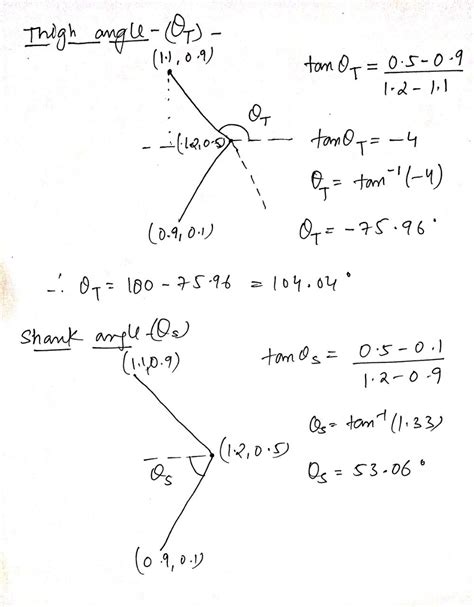 Thigh angle - (θT) -
(1.1, 0.9)
tan θT = 0.5 - 0.9 / 1.2 - 1.1
θT
(1.2, 0.5)
tan θT = -4
θT = tan⁻¹(-4)
(0.9, 0.1)
θT = -75.96°
∴ θT = 100 - 75.96 = 104.04°
Shank angle - (θs)
(1.1, 0.9)
tan θs = 0.5 - 0.1 / 1.2 - 0.9
θs = tan⁻¹(1.33)
(1.2, 0.5)
θs
θs = 53.06°
(0.9, 0.1)